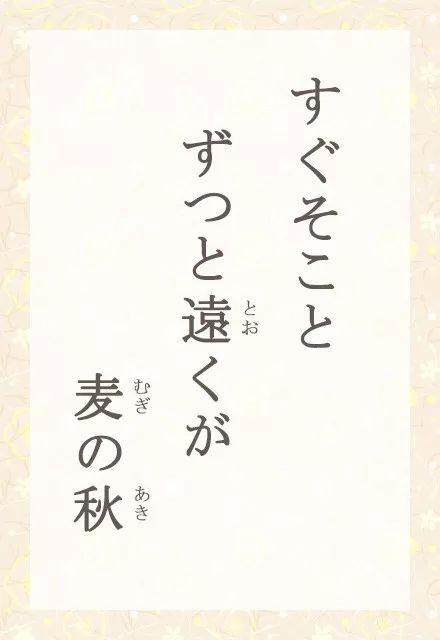 すぐそこと
ずつと遠くが
とお
麦の秋
むぎ
あき